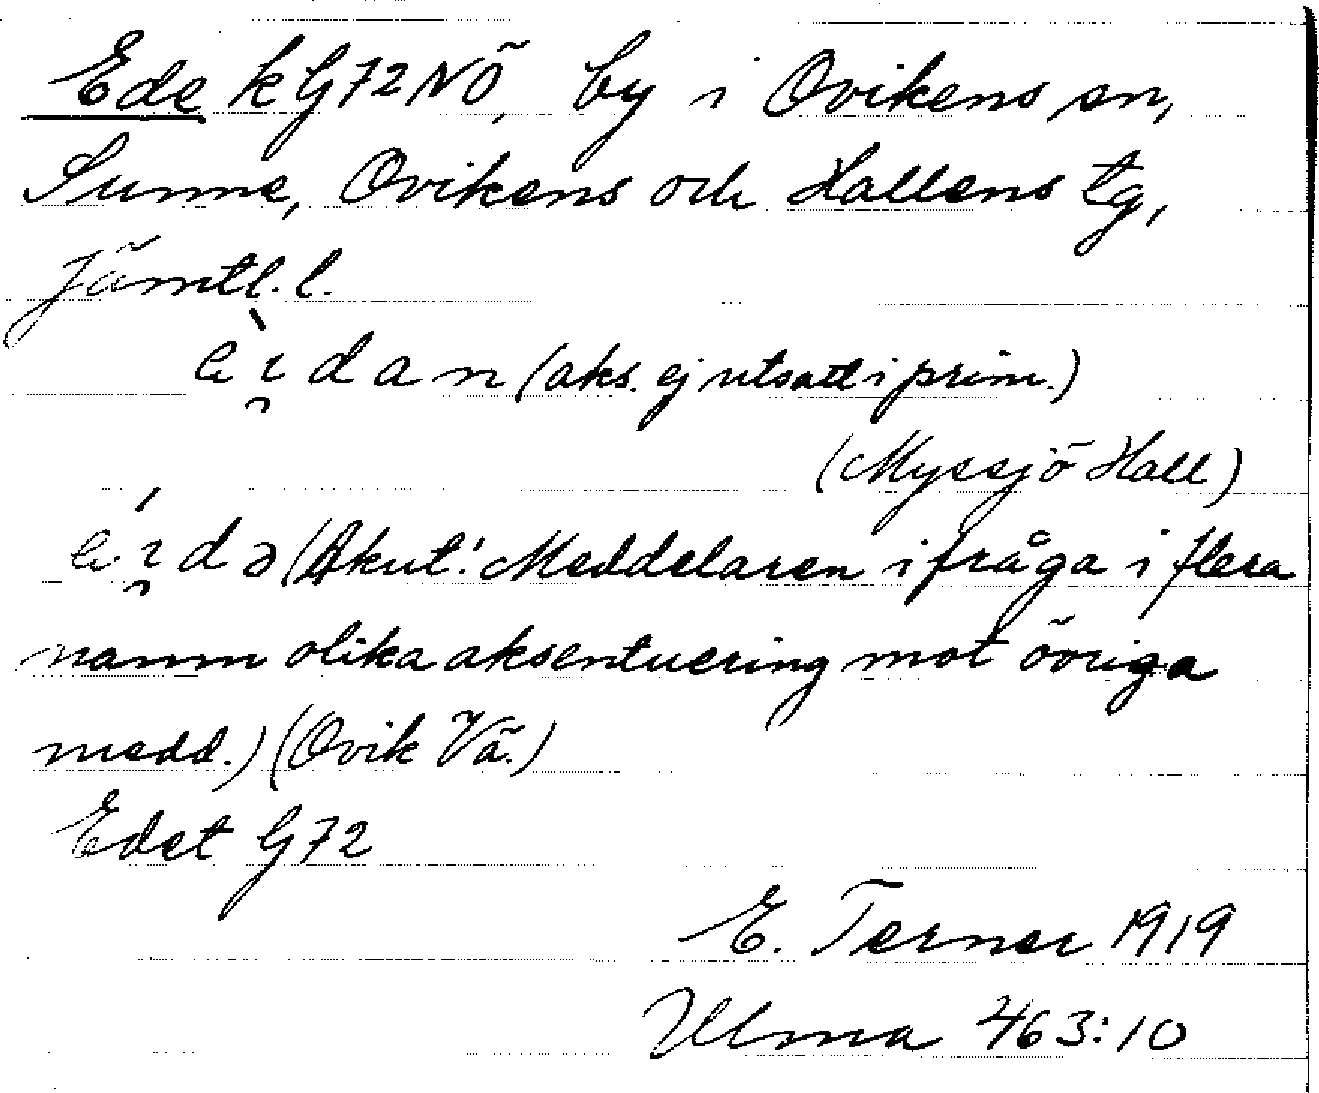 Ede k G72NÖ, by i Ovikens sn,
Sunne, Ovikens och Hallens tg,
Jämtl. l.
èi̯dan (aks. ej utsatt i prim.)
(Myssjö Hall)
éi̯də (Akut! Meddelaren i fråga i flera
namn olika aksentuering mot övriga
medd.) (Ovik Vä.)
Edet G72
E. Terner 1919
Ulma 463:10